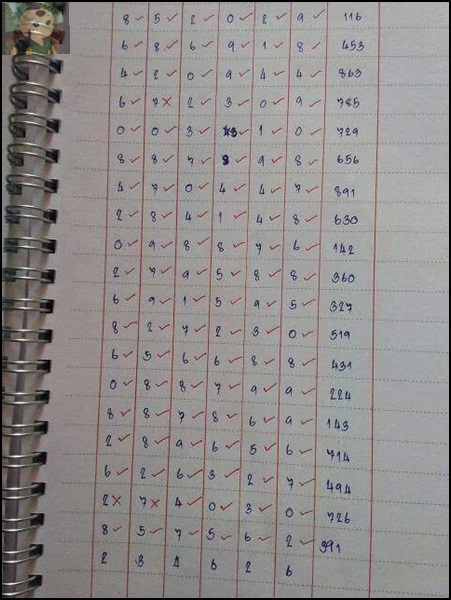 8 ✓ 5 ✓ 2 ✓ 0 ✓ 2 ✓ 9 ✓ 116
6 ✓ 8 ✓ 6 ✓ 9 ✓ 1 ✓ 8 ✓ 453
4 ✓ 2 ✓ 0 ✓ 9 ✓ 4 ✓ 4 ✓ 863
6 ✓ 7 × 2 ✓ 3 ✓ 0 ✓ 9 ✓ 785
0 ✓ 0 ✓ 3 ✓ 3 ✓ 1 ✓ 0 ✓ 729
8 ✓ 8 ✓ 7 ✓ ✓ 9 ✓ 8 ✓ 656
4 ✓ 7 ✓ 0 ✓ 4 ✓ 4 ✓ 7 ✓ 891
2 ✓ 8 ✓ 4 ✓ 1 ✓ 4 ✓ 8 ✓ 630
0 ✓ 9 ✓ 8 ✓ 8 ✓ 7 ✓ 6 ✓ 142
2 ✓ 7 ✓ 9 ✓ 5 ✓ 8 ✓ 8 ✓ 360
6 ✓ 9 ✓ 1 ✓ 5 ✓ 9 ✓ 5 ✓ 327
8 ✓ 2 ✓ 7 ✓ 2 ✓ 3 ✓ 0 ✓ 519
6 ✓ 5 ✓ 6 ✓ 6 ✓ 8 ✓ 8 ✓ 431
0 ✓ 8 ✓ 8 ✓ 7 ✓ 9 ✓ 9 ✓ 224
8 ✓ 8 ✓ 7 ✓ 8 ✓ 6 ✓ 9 ✓ 143
2 ✓ 8 ✓ 9 ✓ 6 ✓ 5 ✓ 6 ✓ 714
6 ✓ 2 ✓ 6 ✓ 3 ✓ 2 ✓ 7 ✓ 494
2 × 7 × 4 ✓ 0 ✓ 3 ✓ 0 ✓ 726
8 ✓ 5 ✓ 7 ✓ 5 ✓ 6 ✓ 2 ✓ 391
2 3 4 6 2 6